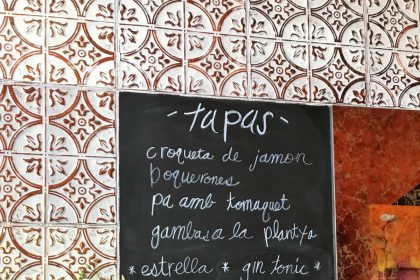 - tapas -
croqueta de jamon
boquerones
pa amb tomaquet
gambas a la plantxa
* estrella * gin tonic *